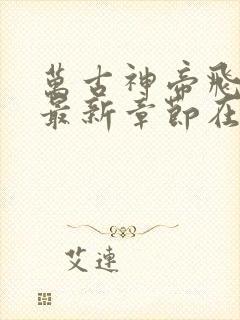 萬古神帝飛
最新章節在
艾連